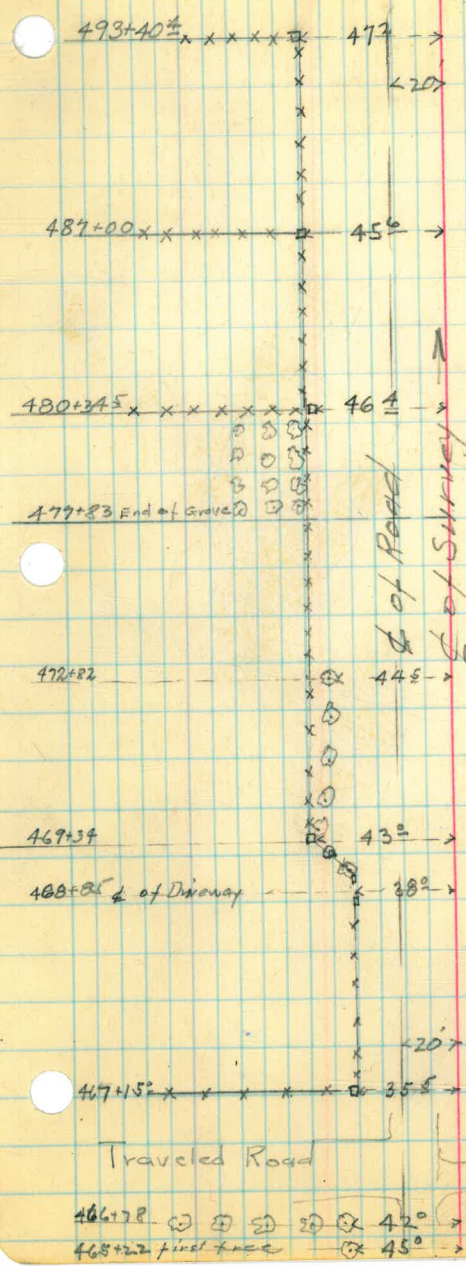 493+40⁴ 47²
20'
487+00 45⁶
480+34⁵ 46⁴
477+83 End of Grove
℄ of Road
℄ of Survey
472+82 44⁵
469+34 43⁰
468+85 ℄ of Driveway 38⁰
20'
467+15⁰ 35⁵
Traveled Road
466+78 42⁰
465+22 first tree 45⁰